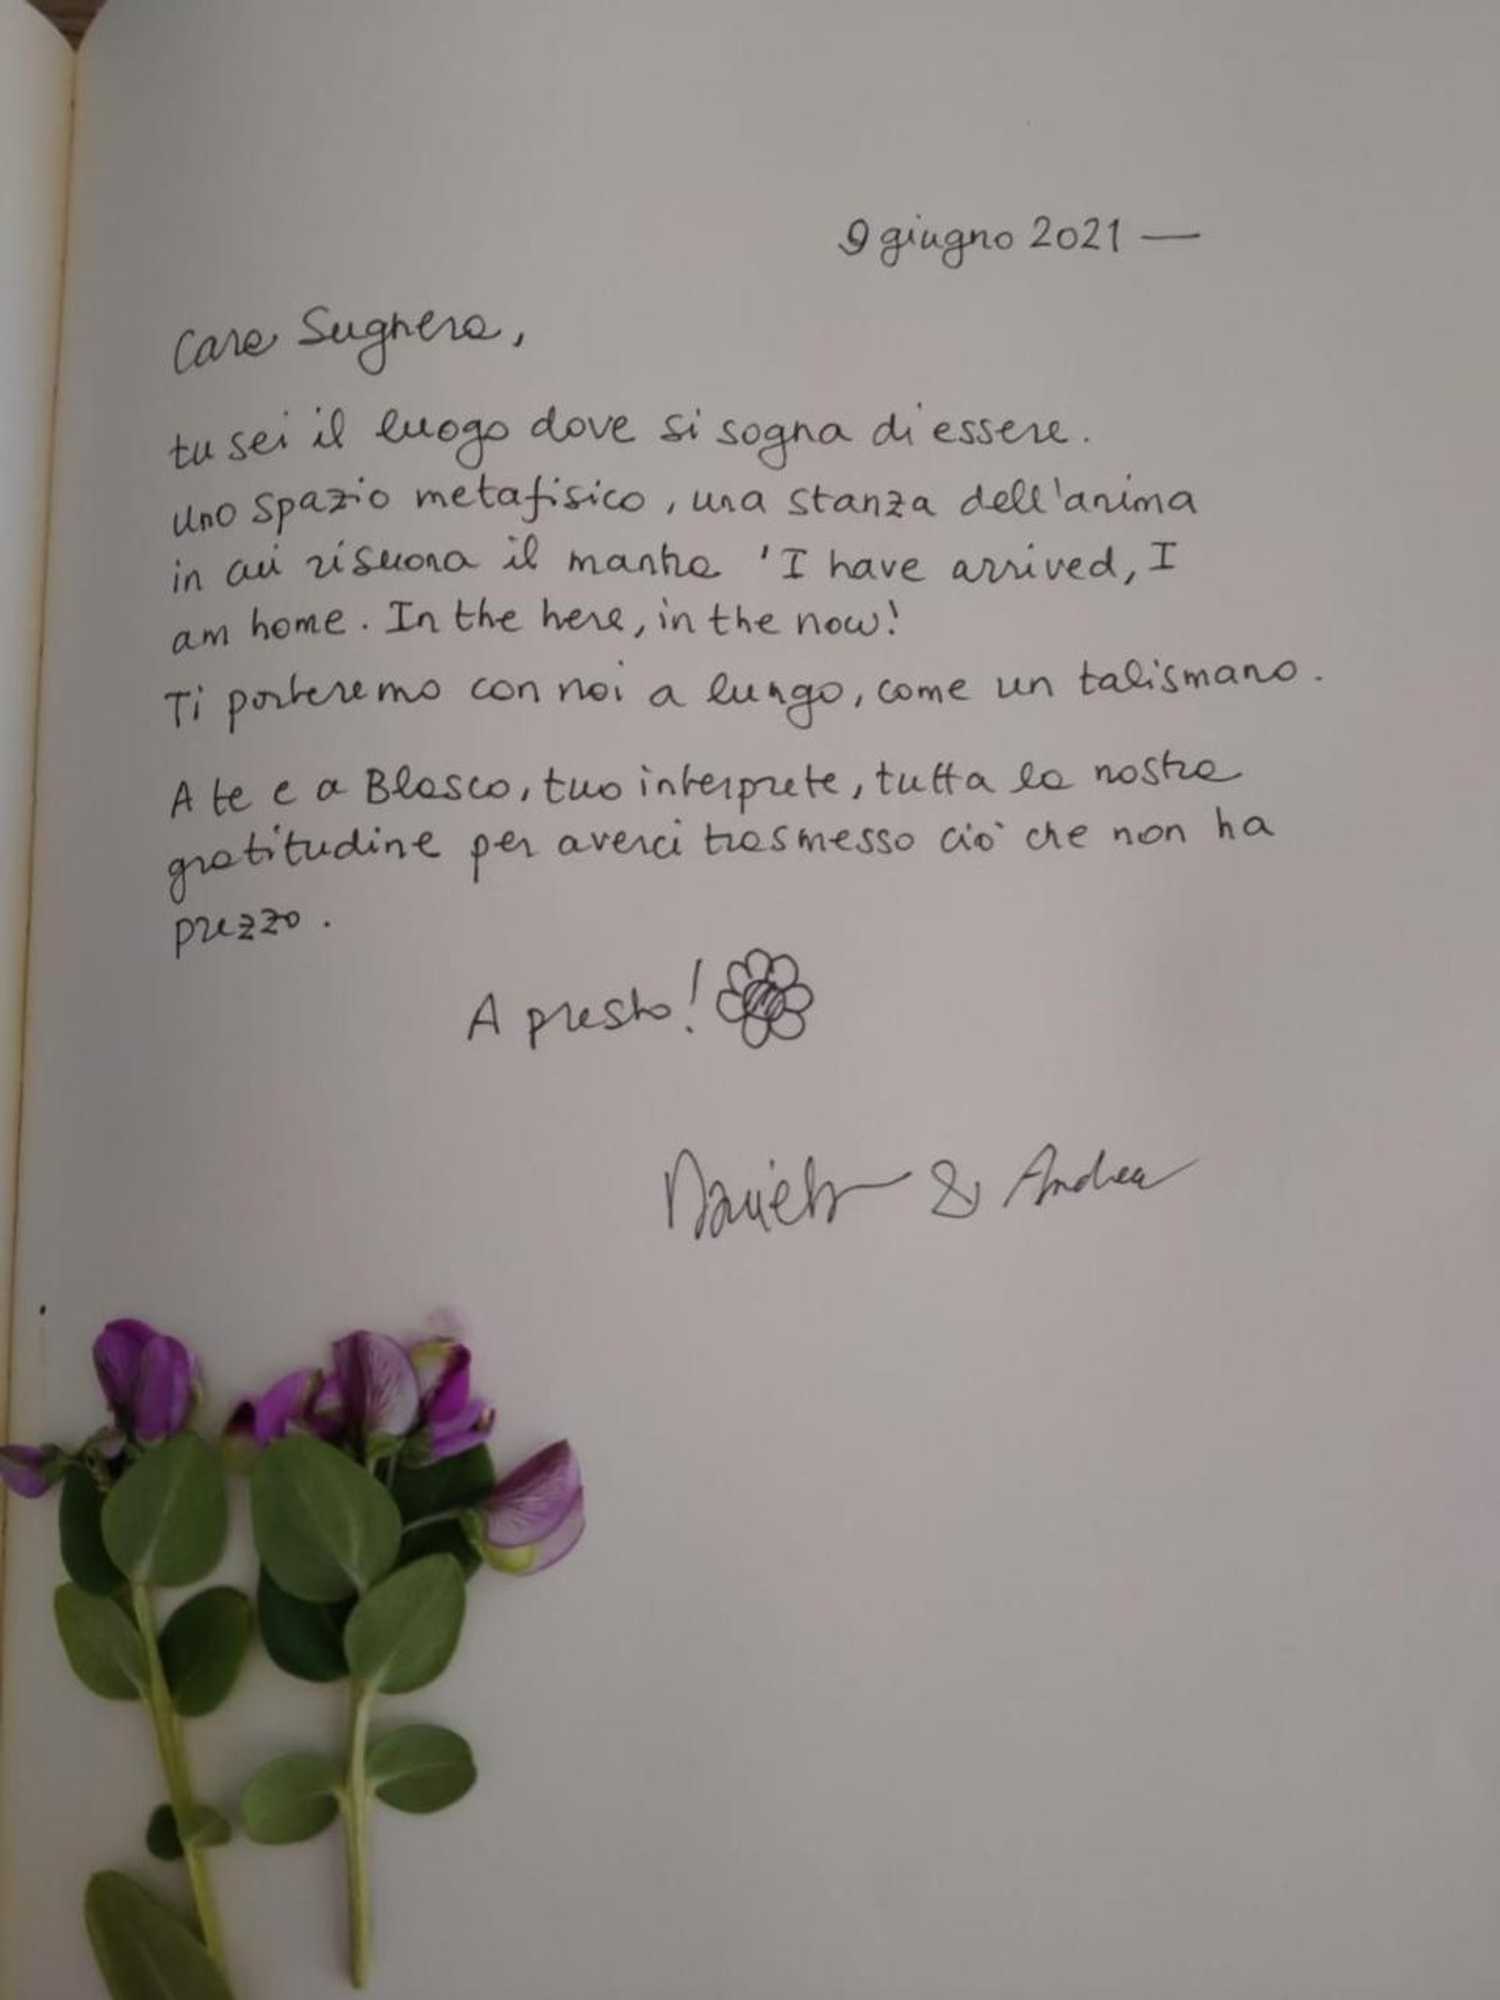 9 giugno 2021 —
Cara Sughera,
tu sei il luogo dove si sogna di essere.
uno spazio metafisico, una stanza dell'anima
in cui risuona il mantra 'I have arrived, I
am home. In the here, in the now!
Ti porteremo con noi a lungo, come un talismano.
A te e a Blasco, tuo interprete, tutta la nostra
gratitudine per averci trasmesso ciò che non ha
prezzo.
A presto!
Daniela & Andrea